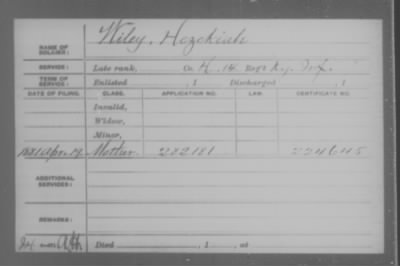 NAME OF SOLDIER: Wiley, Hezekiah
SERVICE: Late rank, Co. H, 14 Reg't Ky. Inf.
TERM OF SERVICE: Enlisted , 1 Discharged , 1
DATE OF FILING. CLASS. APPLICATION NO. LAW. CERTIFICATE NO.
Invalid,
Widow,
Minor,
1881 Apr. 19 Mother 282181 224645
ADDITIONAL SERVICES:
REMARKS:
Died , 1 , at